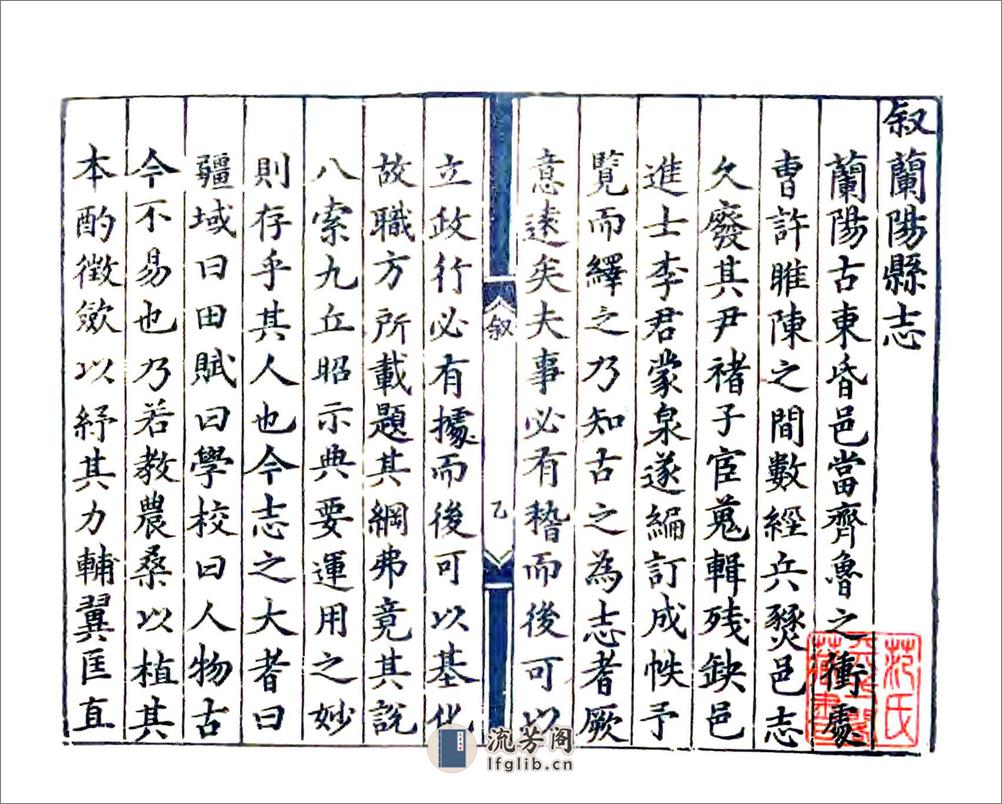 叙蘭陽縣志
蘭陽古東昏邑當齊魯之衝處
曹許睢陳之間數經兵燹邑志
久廢其尹褚子宦蒐輯殘缺邑
進士李君蒙泉遂編訂成帙予
覽而繹之乃知古之為志者厥
意遠矣夫事必有稽而後可以
叙
乙
立政行必有據而後可以基化
故職方所載題其綱弗竟其說
八索九丘昭示典要運用之妙
則存乎其人也今志之大者曰
疆域曰田賦曰學校曰人物古
今不易也乃若教農桑以植其
本酌徵斂以紓其力輔翼匡直
范氏
天一閣
藏書
流芳阁
lfglib.cn